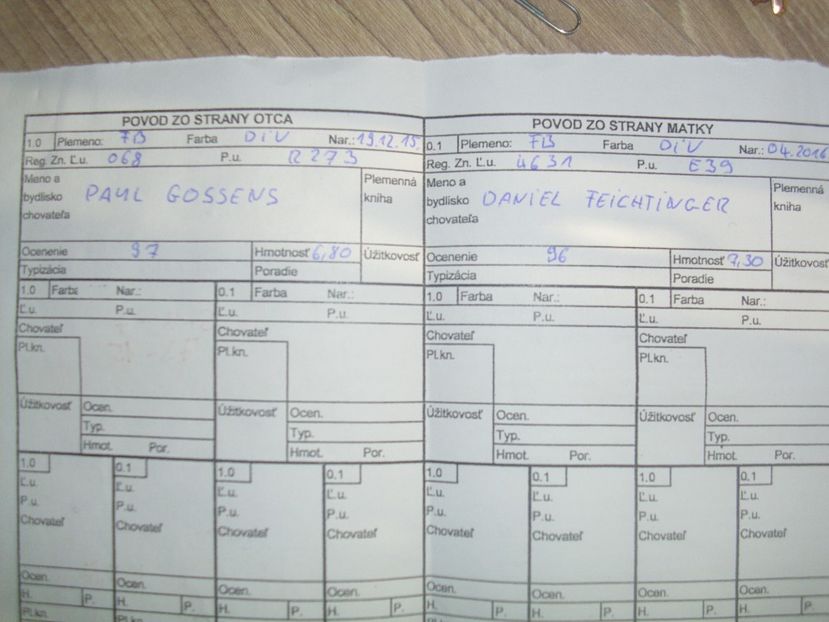 POVOD ZO STRANY OTCA
1.0 Plemeno: FB Farba DiV Nar.: 19.12.15
Reg. Zn. Ľ.u. 068 P.u. R273
Meno a bydlisko chovateľa PAUL GOSSENS Plemenná kniha
Ocenenie 97 Hmotnosť 6,80 Úžitkovosť
Typizácia Poradie
POVOD ZO STRANY MATKY
0.1 Plemeno: FB Farba DiV Nar.: 04.2016
Reg. Zn. Ľ.u. U631 P.u. E39
Meno a bydlisko chovateľa DANIEL FEICHTINGER Plemenná kniha
Ocenenie 96 Hmotnosť 7,30 Úžitkovosť
Typizácia Poradie
1.0 Farba Nar.: 0.1 Farba Nar.: 1.0 Farba Nar.: 0.1 Farba Nar.:
Ľ.u. P.u. Ľ.u. P.u. Ľ.u. P.u. Ľ.u. P.u.
Chovateľ Chovateľ Chovateľ Chovateľ
Pl.kn. Pl.kn. Pl.kn. Pl.kn.
Úžitkovosť Ocen. Úžitkovosť Ocen. Úžitkovosť Ocen. Úžitkovosť Ocen.
Typ. Typ. Typ. Typ.
Hmot. Por. Hmot. Por. Hmot. Por. Hmot. Por.
1.0 0.1 1.0 0.1 1.0 0.1 1.0 0.1
Ľ.u. Ľ.u. Ľ.u. Ľ.u. Ľ.u. Ľ.u. Ľ.u. Ľ.u.
P.u. P.u. P.u. P.u. P.u. P.u. P.u. P.u.
Chovateľ Chovateľ Chovateľ Chovateľ Chovateľ Chovateľ Chovateľ Chovateľ
Ocen. Ocen. Ocen. Ocen. Ocen. Ocen. Ocen. Ocen.
H. P. H. P. H. P. H. P. H. P. H. P. H. P. H. P.
Pl.kn. Pl.kn.